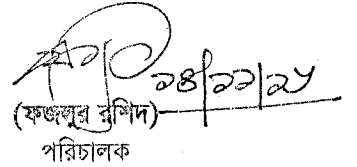 ১৪/১১/২৫
(ফজলুর রশিদ)
পরিচালক